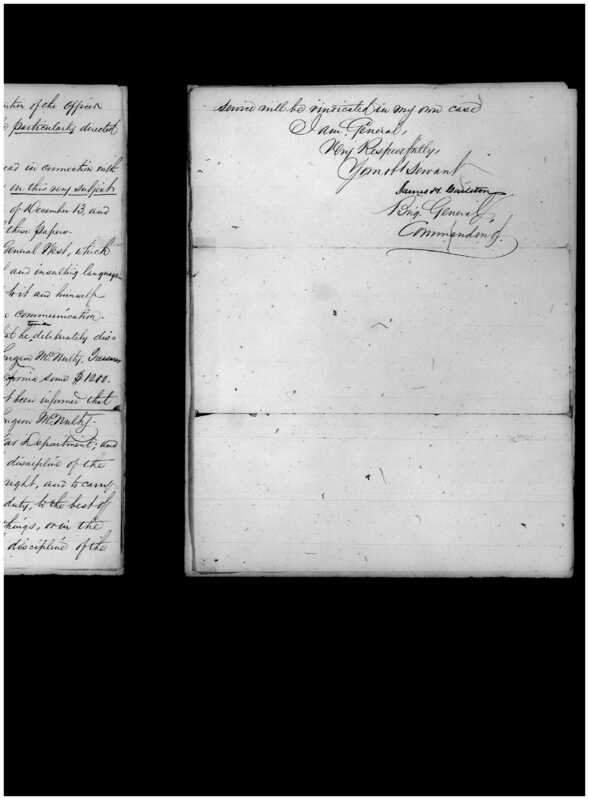 of the Officer
particularly directed
in connection with
on this very subject
of December 13, and
these papers.
General West, which
and insulting language
to it and himself
communication.
he deliberately dis-
McNulty,
some $1200.
been informed that
McNulty.
Department; and
discipline of the
right, and to carry
duty, to the best of
things, or in the
discipline of the
service will be vindicated in my own case
I am, General,
Very Respectfully,
Your Obt Servant
James H. Carleton
Brig. General,
Commanding.